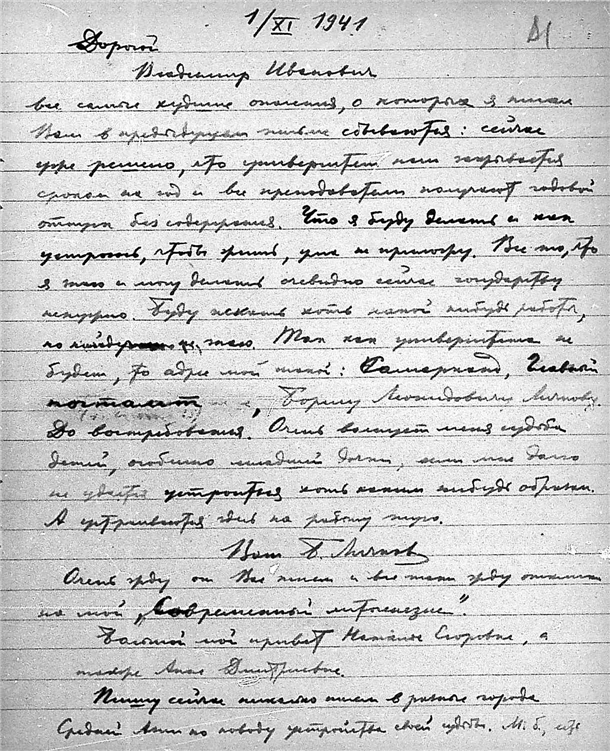 1/XI 1941
Дорогой
Владимир Иванович
все самые худшие опасения, о которых я писал
Вам в предыдущем письме сбываются: сейчас
уже решено, что университет наш закрывается
сроком на год и все преподаватели получают годовой
отпуск без содержания. Что я буду делать и как
устроюсь, чтобы жить, ума не приложу. Все то, что
я знаю и могу делать очевидно сейчас государству
ненужно. Буду искать хоть какой нибудь работы,
но не знаю. Так как университета не
будет, то адрес мой такой: Самарканд, Главный
почтамт, Борису Леонидовичу Личкову
До востребования. Очень волнует меня судьба
детей, особенно младшей дочки, если мне
не удастся устроиться хоть каким нибудь образом.
А устраиваются здесь на
Ваш Б. Личков
Очень жду от Вас писем и все таки жду отклика
на мой „Современный литогенезис“.
Большой мой привет Наталье Егоровне, а
также Анне Дмитриевне.
Пишу сейчас несколько писем в разные города
Средней Азии по поводу устройства своей судьбы. М. б.,